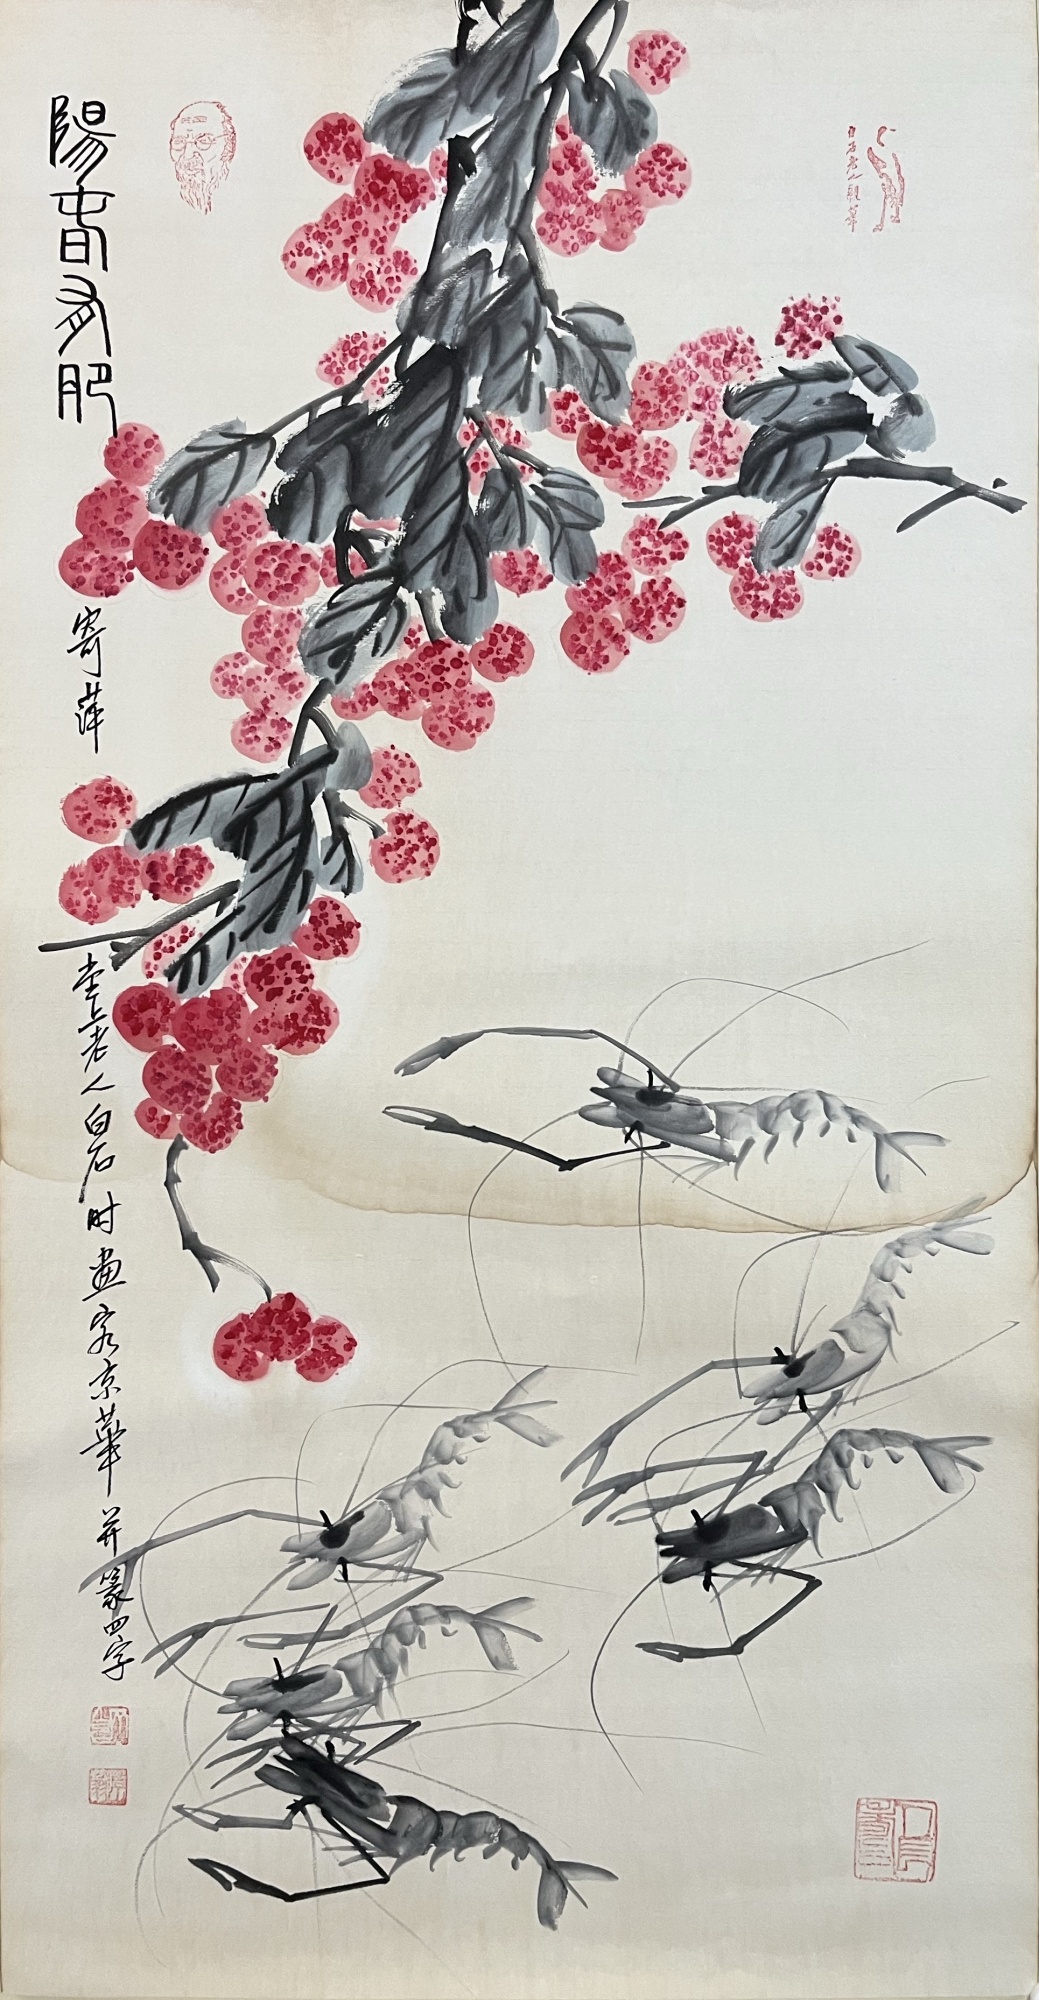 陽春多肥
寄萍
堂上老人白石时画客京華并篆四字
白石老人